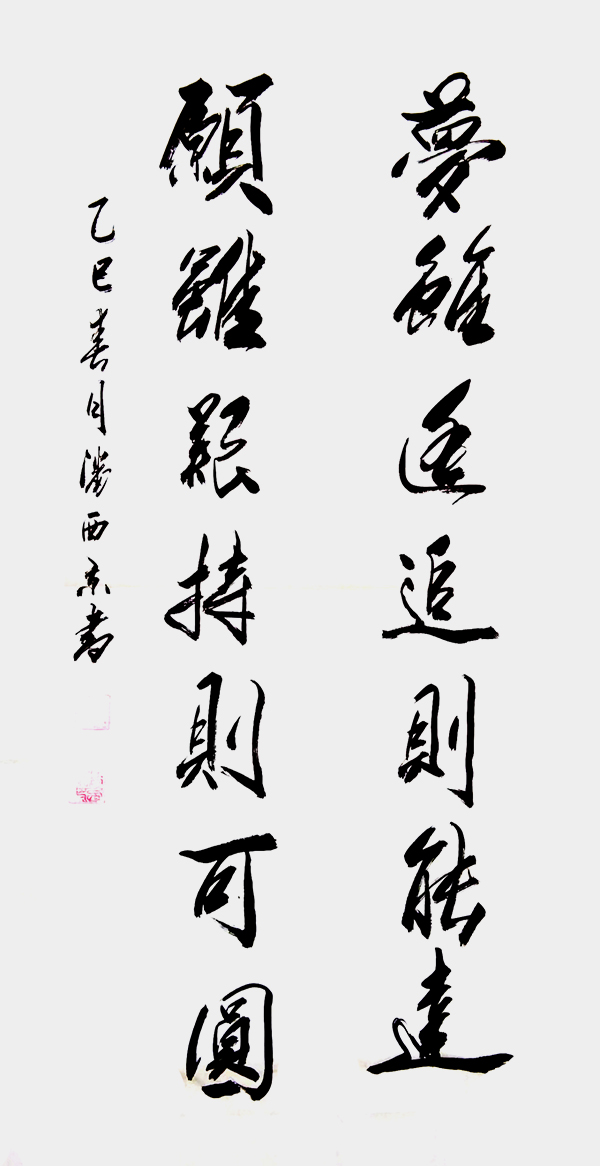 夢雖遥追則能達
願雖艱持則可圓
乙巳春月潘西京書